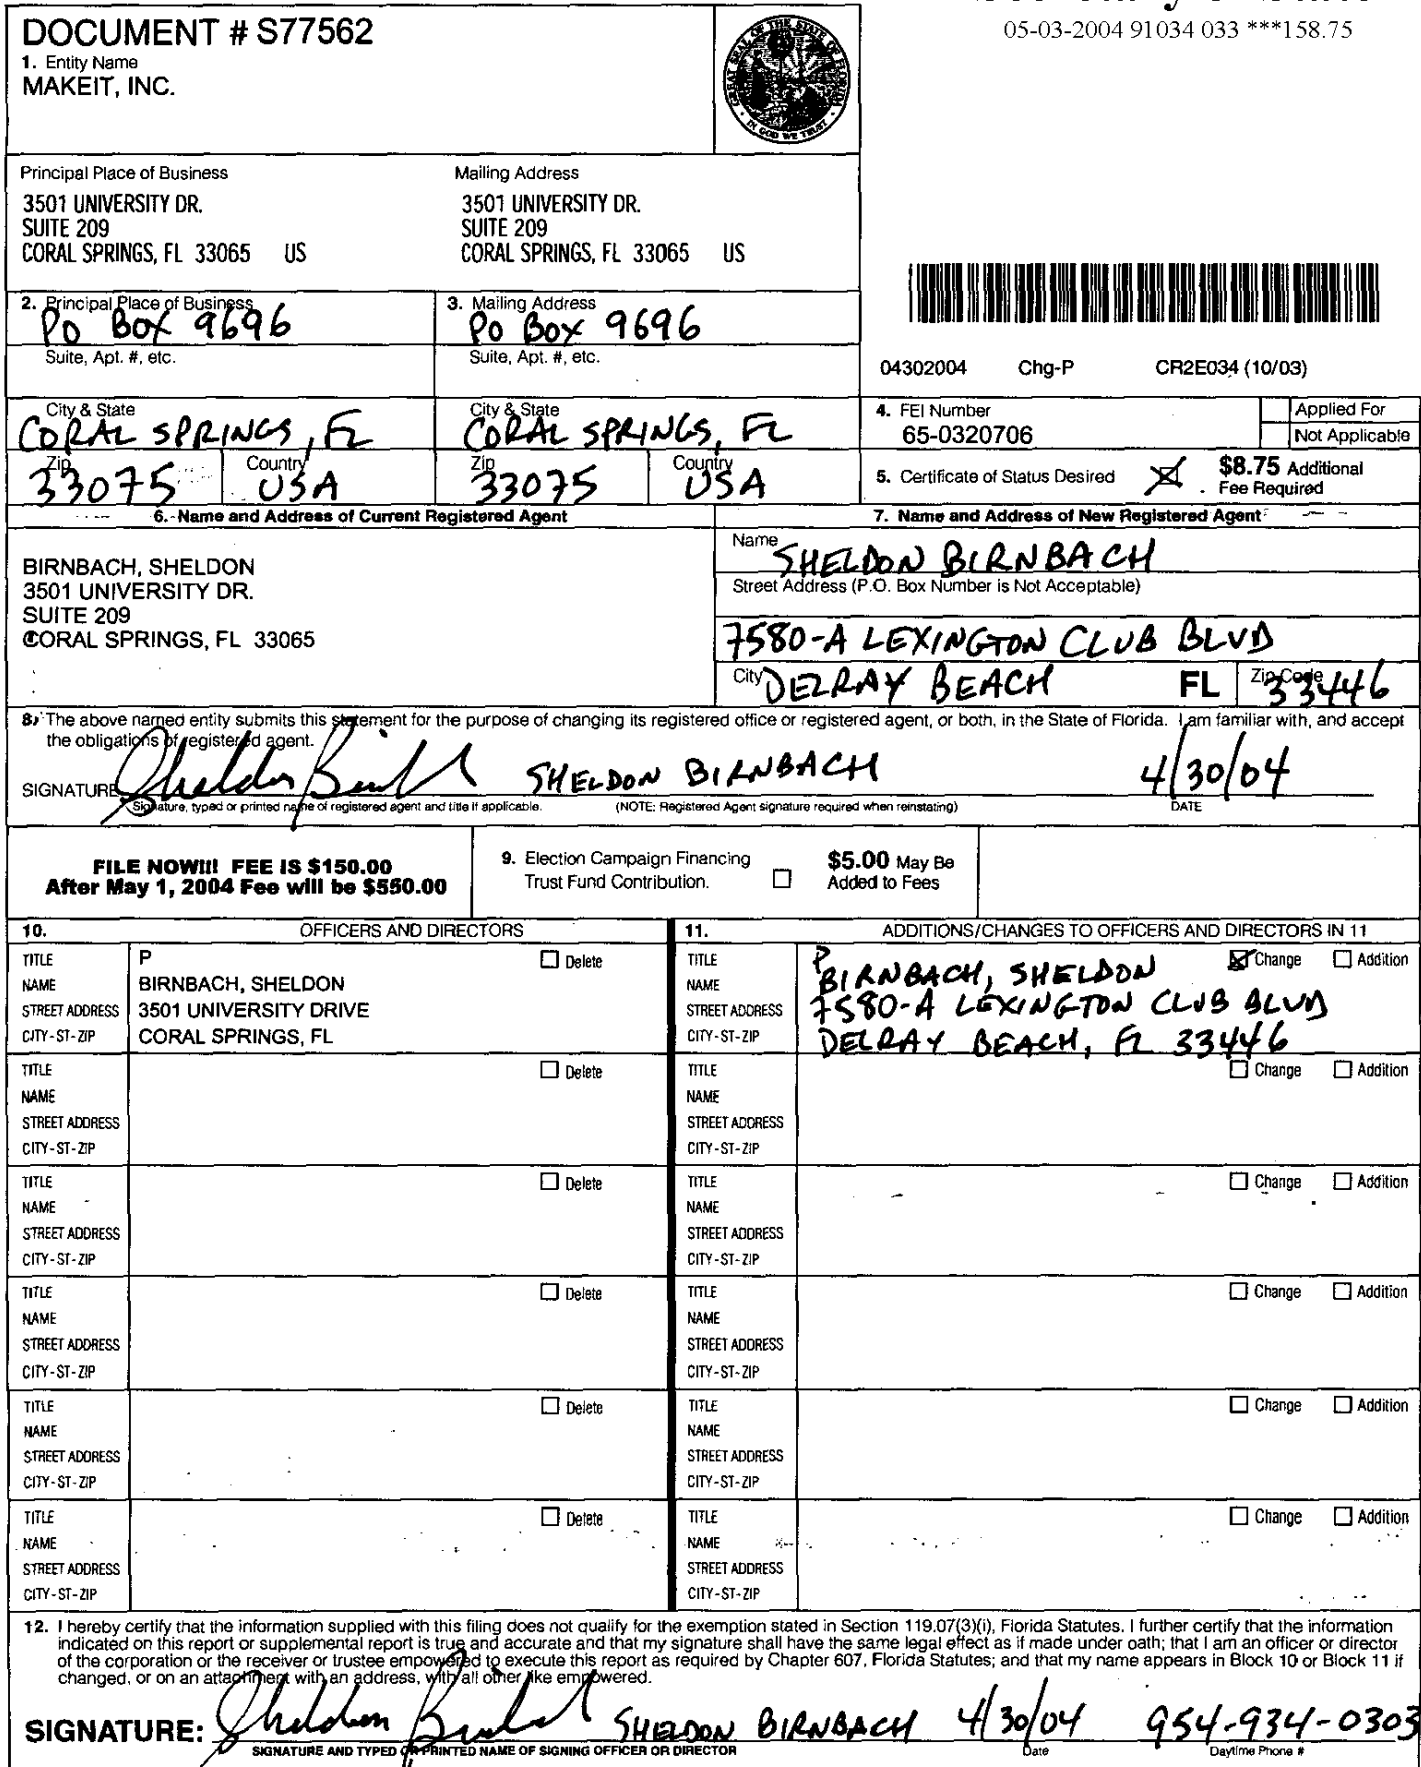 05-03-2004 91034 033 ***158.75
DOCUMENT # S77562
1. Entity Name
MAKEIT, INC.
GREAT SEAL OF THE STATE OF FLORIDA
IN GOD WE TRUST
Principal Place of Business
3501 UNIVERSITY DR.
SUITE 209
CORAL SPRINGS, FL 33065 US
Mailing Address
3501 UNIVERSITY DR.
SUITE 209
CORAL SPRINGS, FL 33065 US
2. Principal Place of Business
PO BOX 9696
Suite, Apt. #, etc.
City & State
CORAL SPRINGS, FL
Zip
33075
Country
USA
3. Mailing Address
PO BOX 9696
Suite, Apt. #, etc.
City & State
CORAL SPRINGS, FL
Zip
33075
Country
USA
04302004 Chg-P CR2E034 (10/03)
4. FEI Number
65-0320706
Applied For
Not Applicable
5. Certificate of Status Desired
$8.75 Additional
Fee Required
6. Name and Address of Current Registered Agent
BIRNBACH, SHELDON
3501 UNIVERSITY DR.
SUITE 209
CORAL SPRINGS, FL 33065
7. Name and Address of New Registered Agent
Name
SHELDON BIRNBACH
Street Address (P.O. Box Number is Not Acceptable)
7580-A LEXINGTON CLUB BLVD
City DELRAY BEACH FL Zip Code 33446
8. The above named entity submits this statement for the purpose of changing its registered office or registered agent, or both, in the State of Florida. I am familiar with, and accept
the obligations of registered agent.
SIGNATURE Sheldon Birnbach SHELDON BIRNBACH 4/30/04
Signature, typed or printed name of registered agent and title if applicable. (NOTE: Registered Agent signature required when reinstating) DATE
FILE NOW!!! FEE IS $150.00
After May 1, 2004 Fee will be $550.00
9. Election Campaign Financing
Trust Fund Contribution.
$5.00 May Be
Added to Fees
10. OFFICERS AND DIRECTORS
TITLE P Delete
NAME BIRNBACH, SHELDON
STREET ADDRESS 3501 UNIVERSITY DRIVE
CITY-ST-ZIP CORAL SPRINGS, FL
TITLE Delete
NAME
STREET ADDRESS
CITY-ST-ZIP
TITLE Delete
NAME
STREET ADDRESS
CITY-ST-ZIP
TITLE Delete
NAME
STREET ADDRESS
CITY-ST-ZIP
TITLE Delete
NAME
STREET ADDRESS
CITY-ST-ZIP
TITLE Delete
NAME
STREET ADDRESS
CITY-ST-ZIP
11. ADDITIONS/CHANGES TO OFFICERS AND DIRECTORS IN 11
TITLE P Change Addition
NAME BIRNBACH, SHELDON
STREET ADDRESS 7580-A LEXINGTON CLUB BLVD
CITY-ST-ZIP DELRAY BEACH, FL 33446
TITLE Change Addition
NAME
STREET ADDRESS
CITY-ST-ZIP
TITLE Change Addition
NAME
STREET ADDRESS
CITY-ST-ZIP
TITLE Change Addition
NAME
STREET ADDRESS
CITY-ST-ZIP
TITLE Change Addition
NAME
STREET ADDRESS
CITY-ST-ZIP
TITLE Change Addition
NAME
STREET ADDRESS
CITY-ST-ZIP
12. I hereby certify that the information supplied with this filing does not qualify for the exemption stated in Section 119.07(3)(i), Florida Statutes. I further certify that the information
indicated on this report or supplemental report is true and accurate and that my signature shall have the same legal effect as if made under oath; that I am an officer or director
of the corporation or the receiver or trustee empowered to execute this report as required by Chapter 607, Florida Statutes; and that my name appears in Block 10 or Block 11 if
changed, or on an attachment with an address, with all other like empowered.
SIGNATURE: Sheldon Birnbach SHELDON BIRNBACH 4/30/04 954-934-0303
SIGNATURE AND TYPED OR PRINTED NAME OF SIGNING OFFICER OR DIRECTOR Date Daytime Phone #